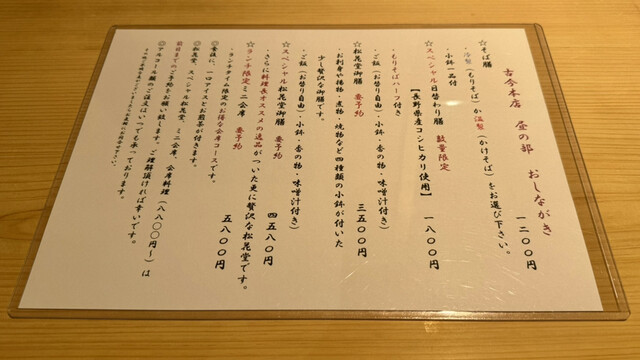 古今本店　昼の部　おしながき
☆そば膳　一二〇〇円
・冷製（もりそば）か温製（かけそば）をお選び下さい。
・小鉢一品付
☆スペシャル日替わり膳　数量限定　一八〇〇円
【長野県産コシヒカリ使用】
・もりそばハーフ付き
・ご飯（お替り自由）・小鉢・香の物・味噌汁付き）
☆松花堂御膳　要予約　三五〇〇円
・お刺身や揚物・煮物・焼物など四種類の小鉢が付いた
少し贅沢な御膳です。
・ご飯（お替り自由）・小鉢・香の物・味噌汁付き）
☆スペシャル松花堂御膳　要予約　四五八〇円
・さらに料理長オススメの逸品がついた更に贅沢な松花堂です。
☆ランチ限定ミニ会席　要予約　五八〇〇円
・ランチタイム限定のお得な会席コースです。
◎食後に、一口アイスとお煎茶が付きます。
◎松花堂、スペシャル松花堂、ミニ会席、会席料理（八八〇〇円～）は
前日までのご予約をお願い致します。ご理解頂ければ幸いです。
◎アルコール類のご注文はいつでも承っております。